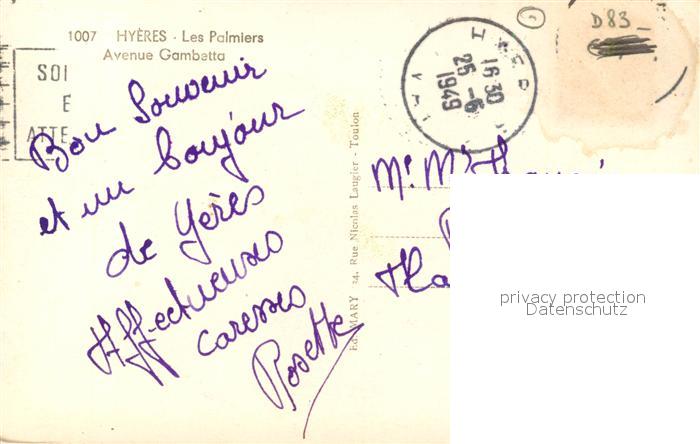 1007 HYÈRES - Les Palmiers
Avenue Gambetta
SOI
E
ATTE
16 30
25 -6
1949
D83
Bon Souvenir
et un bonjour
de Yères
Affectueuses
caresses
Rosette
34, Rue Nicolas Laugier - Toulon
Mr Me
privacy protection
Datenschutz